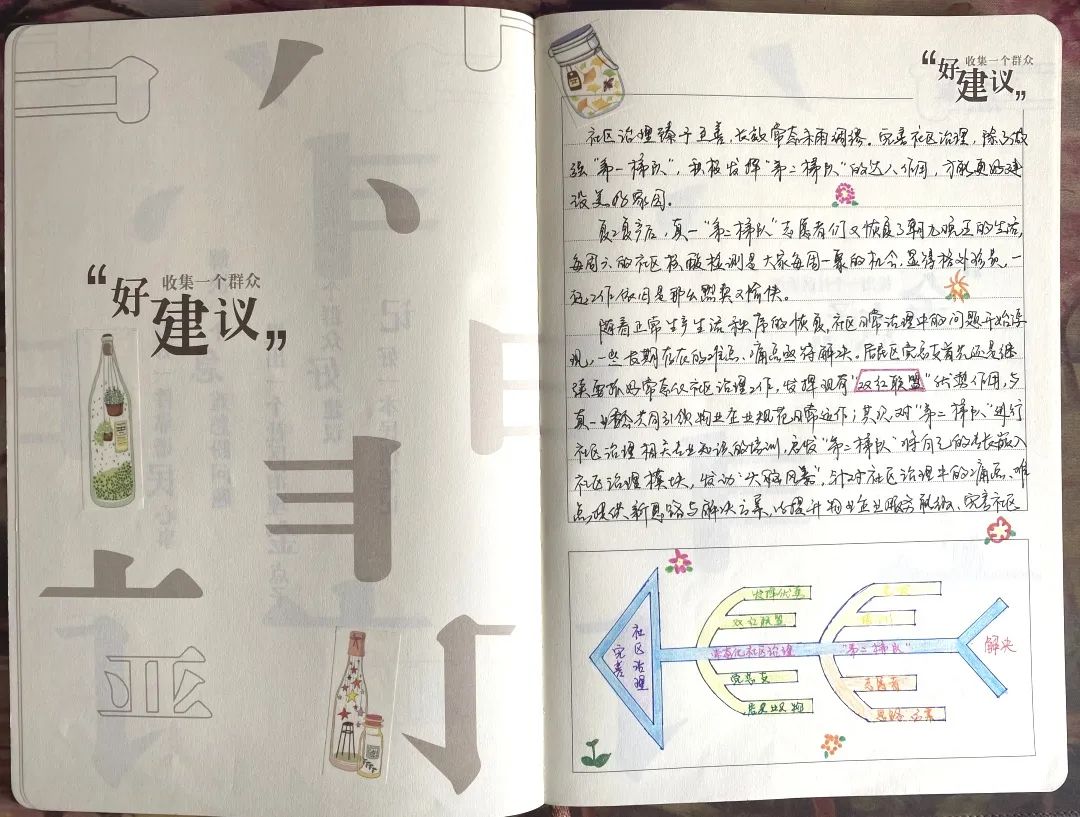 “好建议”
收集一个群众
收集一个群众
“好建议”
社区治理臻于至善，长效常态未雨绸缪。完善社区治理，除了做
强“第一梯队”，积极发挥“第二梯队”的达人作用，方能更好建
设美好家园。
复工复产后，真一“第二梯队”志愿者们又恢复了朝九晚五的生活，
每周六的社区核酸检测是大家每周一聚的机会，显得格外珍贵，一
起工作依旧是那么默契又愉快。
随着正常生产生活秩序的恢复，社区日常治理中的问题开始浮
现，一些长期存在的难点、痛点亟待解决。居民区党总支首先还是继
续要抓好常态化社区治理工作，发挥现有“双红联盟”优势作用，与
真一业委会共同引领物业企业规范日常运作；其次，对“第二梯队”进行
社区治理相关专业知识的培训，启发“第二梯队”将自己的专长嵌入
社区治理模块，发动“头脑风暴”，针对社区治理中的痛点、难
点提供新思路与解决方案，以提升物业企业服务、完善社区
完善
社区治理
发挥优势
双红联盟
常态化社区治理
党总支
居委
培训
“第二梯队”
志愿者
思路 方案
解决